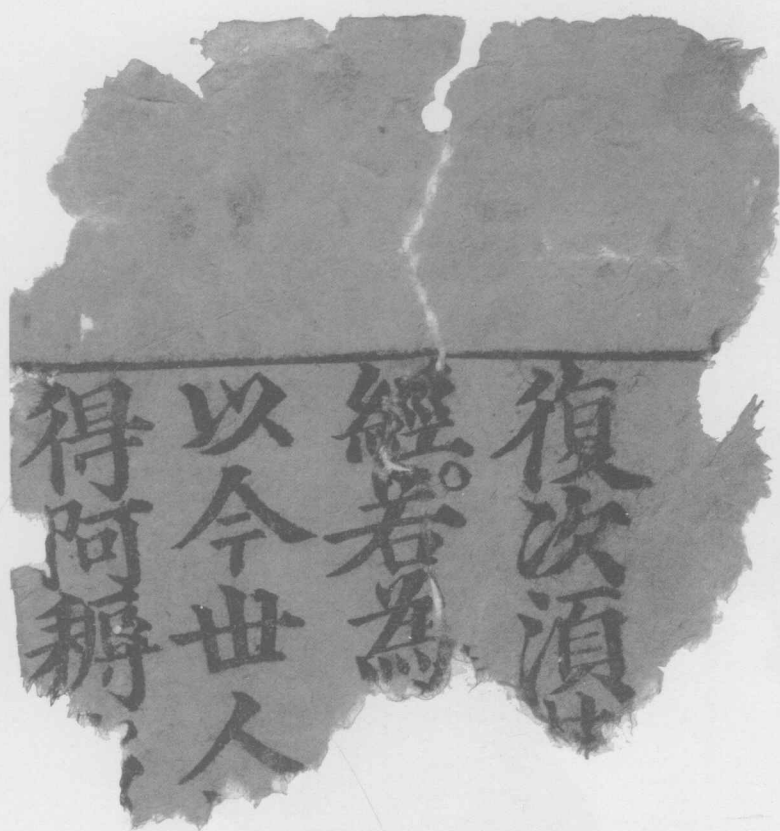 復次湏
經。若為
以今丗人
得阿耨